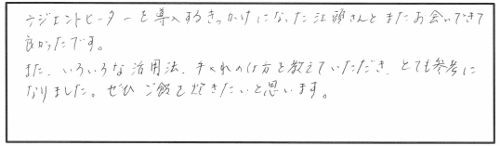 ラジエントヒーターを導入するきっかけになった江頭さんとまたお会いできて
良かったです。
また、いろいろな活用法、手入れのし方を教えていただき、とても参考に
なりました。ぜひご飯を炊きたいと思います。